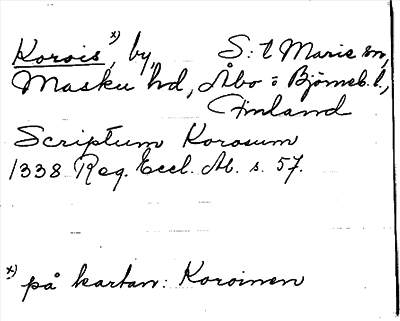 Korois x), by, S:t Marie sn,
Masku hd, Åbo o Björneb. l.,
Finland
Scriptum Korosum
1338 Reg. Eccl. Ab. s. 57.
x) på kartan: Koroinen